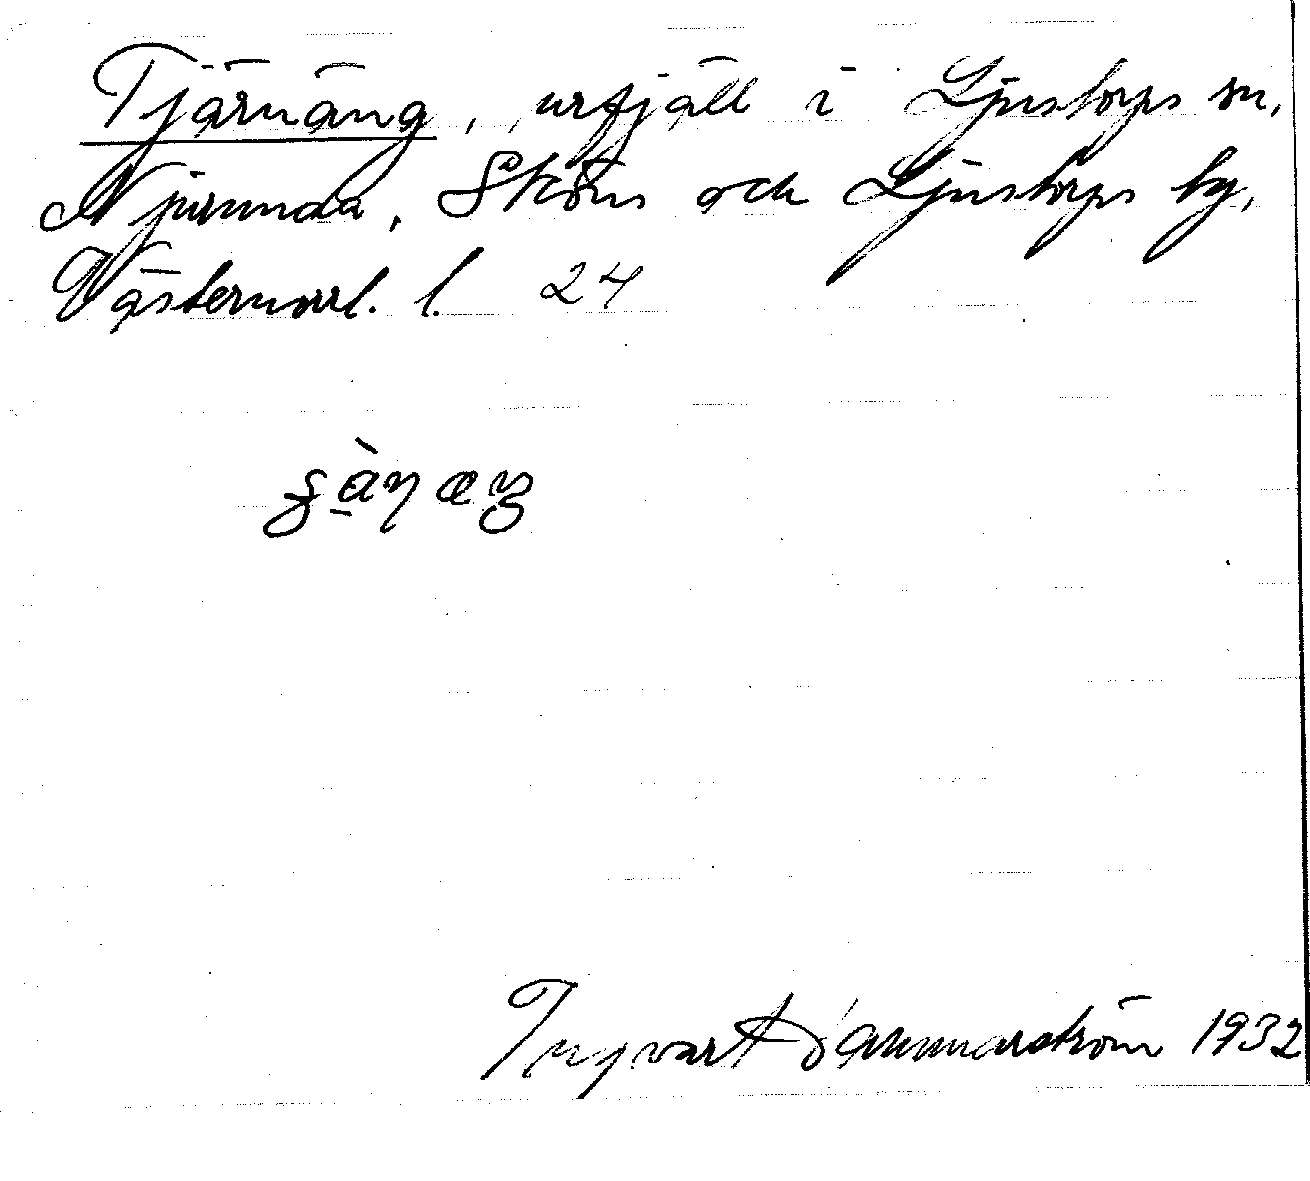 Tjärnäng, urfjäll i Ljustorps sn,
Njurunda, Sköns och Ljustorps tg,
Västernorrl. l. 24
Ingvar Hammarström 1932